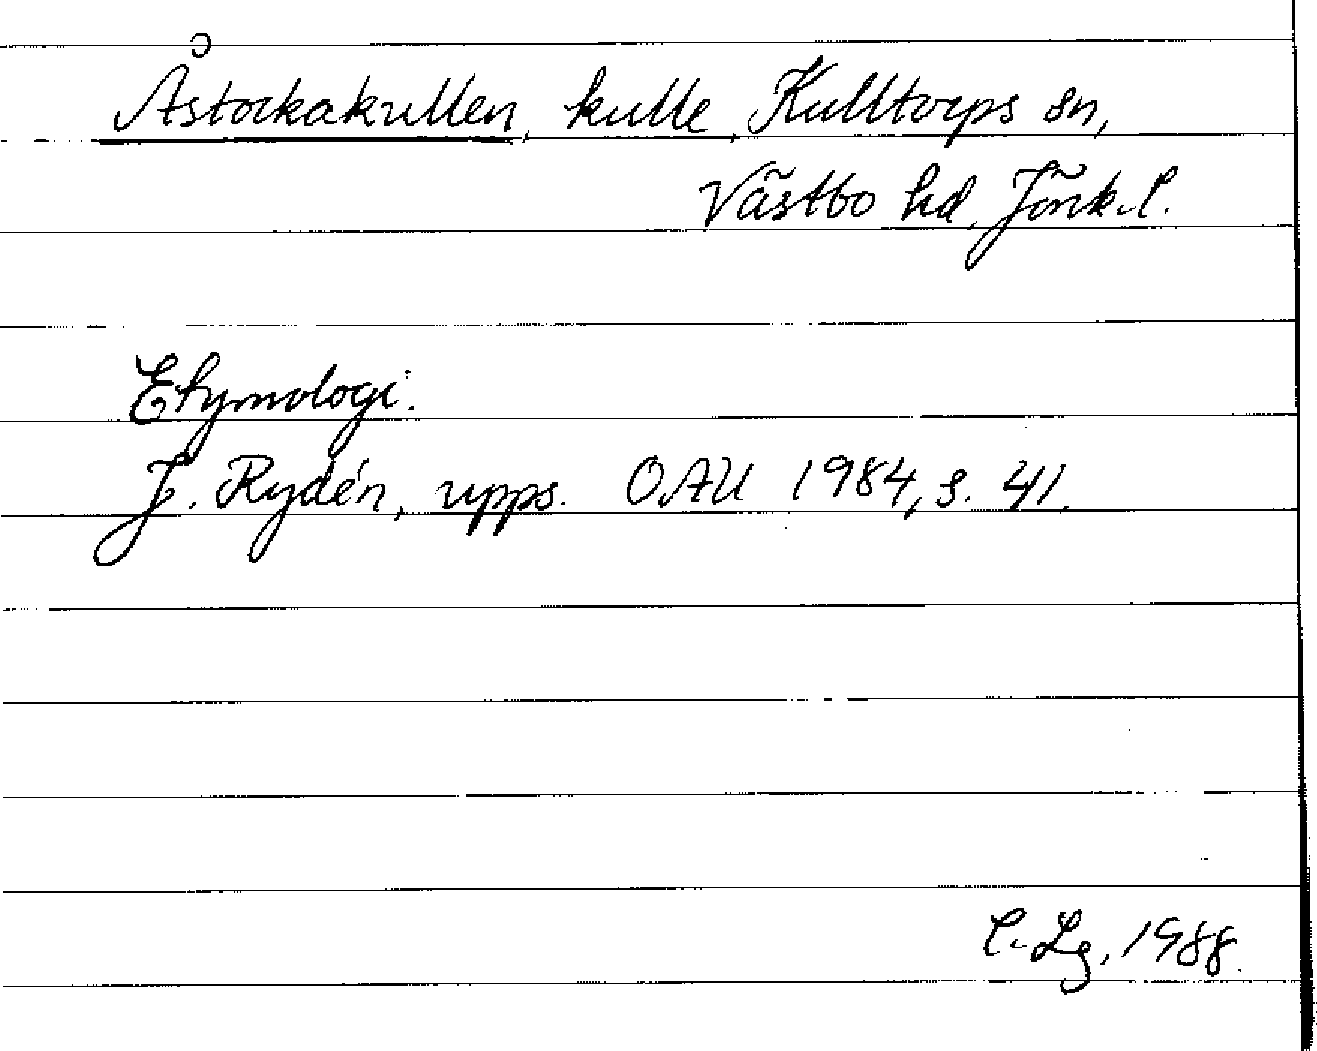 Åstorkakullen, kulle, Kulltorps sn,
Västbo hd, Jönk. l.
Etymologi.
J. Rydén, upps. OAU 1984, s. 41.
C. Lg, 1988.